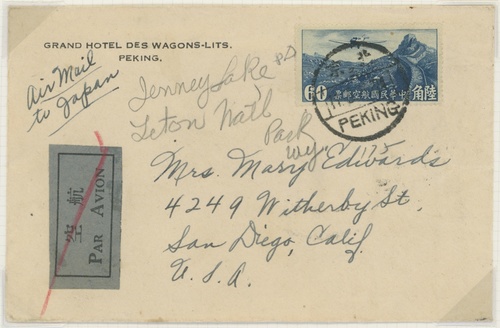 GRAND HOTEL DES WAGONS-LITS.
PEKING.
Air Mail
to Japan
Jenney Lake
Teton Nat'l
Park
Wy.
60
中華民國航空郵票
角陸
PEKING
航空
PAR AVION
Mrs. Mary Edwards
4249 Witherby St,
San Diego, Calif.
U.S.A.